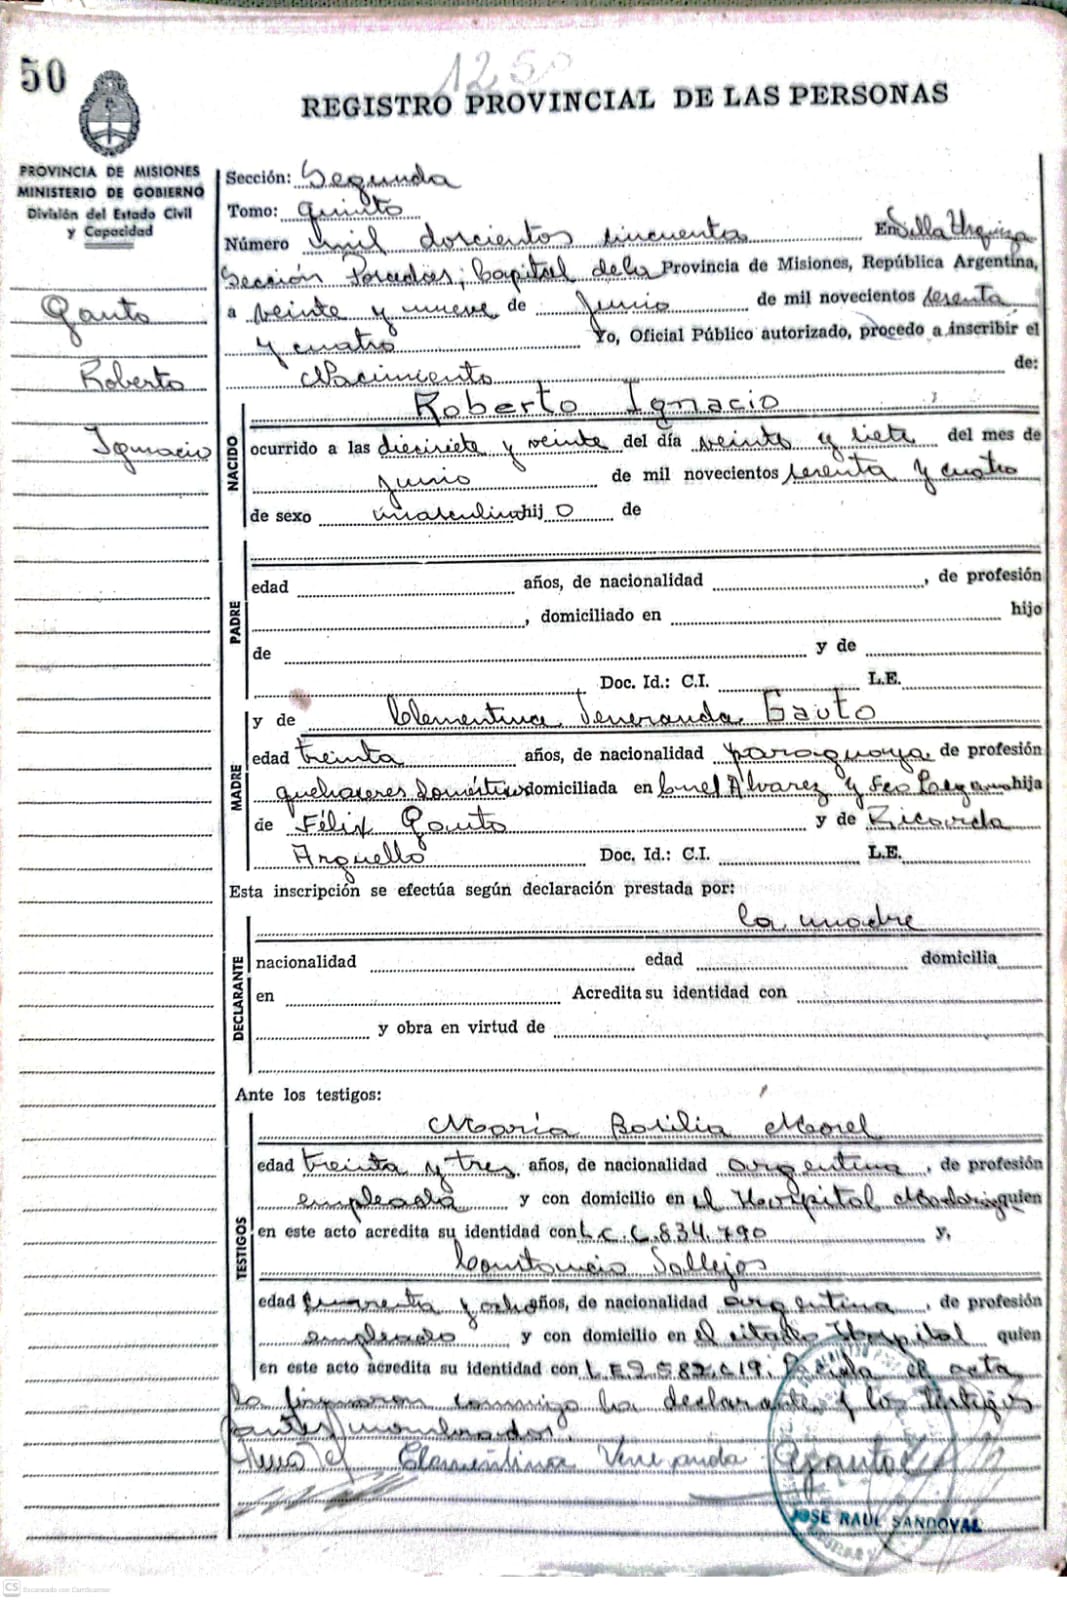 50
1250
REGISTRO PROVINCIAL DE LAS PERSONAS
PROVINCIA DE MISIONES
MINISTERIO DE GOBIERNO
División del Estado Civil
y Capacidad
Gauto
Roberto
Ignacio
Sección: Segunda
Tomo: Quinto
Número mil doscientos cincuenta En Villa Urquiza
Sección Posadas, Capital de la Provincia de Misiones, República Argentina,
a veinte y nueve de Junio de mil novecientos sesenta
y cuatro Yo, Oficial Público autorizado, procedo a inscribir el
Nacimiento de:
NACIDO
Roberto Ignacio
ocurrido a las diecisiete y veinte del día veinte y siete del mes de
junio de mil novecientos sesenta y cuatro
de sexo masculino hijo de
PADRE
edad años, de nacionalidad , de profesión
, domiciliado en hijo
de y de
Doc. Id.: C.I. L.E.
MADRE
y de Clementina Veneranda Gauto
edad treinta años, de nacionalidad paraguaya de profesión
quehaceres domésticos domiciliada en Cnel Alvarez y Fco hija
de Félix Gauto y de Ricarda
Arguello Doc. Id.: C.I. L.E.
Esta inscripción se efectúa según declaración prestada por:
DECLARANTE
la madre
nacionalidad edad domicilia
en Acredita su identidad con
y obra en virtud de
Ante los testigos:
TESTIGOS
María Basilia Morel
edad treinta y tres años, de nacionalidad argentina , de profesión
empleada y con domicilio en el Hospital Madariaga quien
en este acto acredita su identidad con L.C. 6.834.790 y,
Constancio Vallejos
edad cuarenta y ocho años, de nacionalidad argentina , de profesión
empleado y con domicilio en el citado Hospital quien
en este acto acredita su identidad con L.E. el acta
la firmaron conmigo la declarante y los testigos
antes nombrados.
Clementina Veneranda Gauto
JOSE RAUL SANDOVAL
CS Escaneado con CamScanner